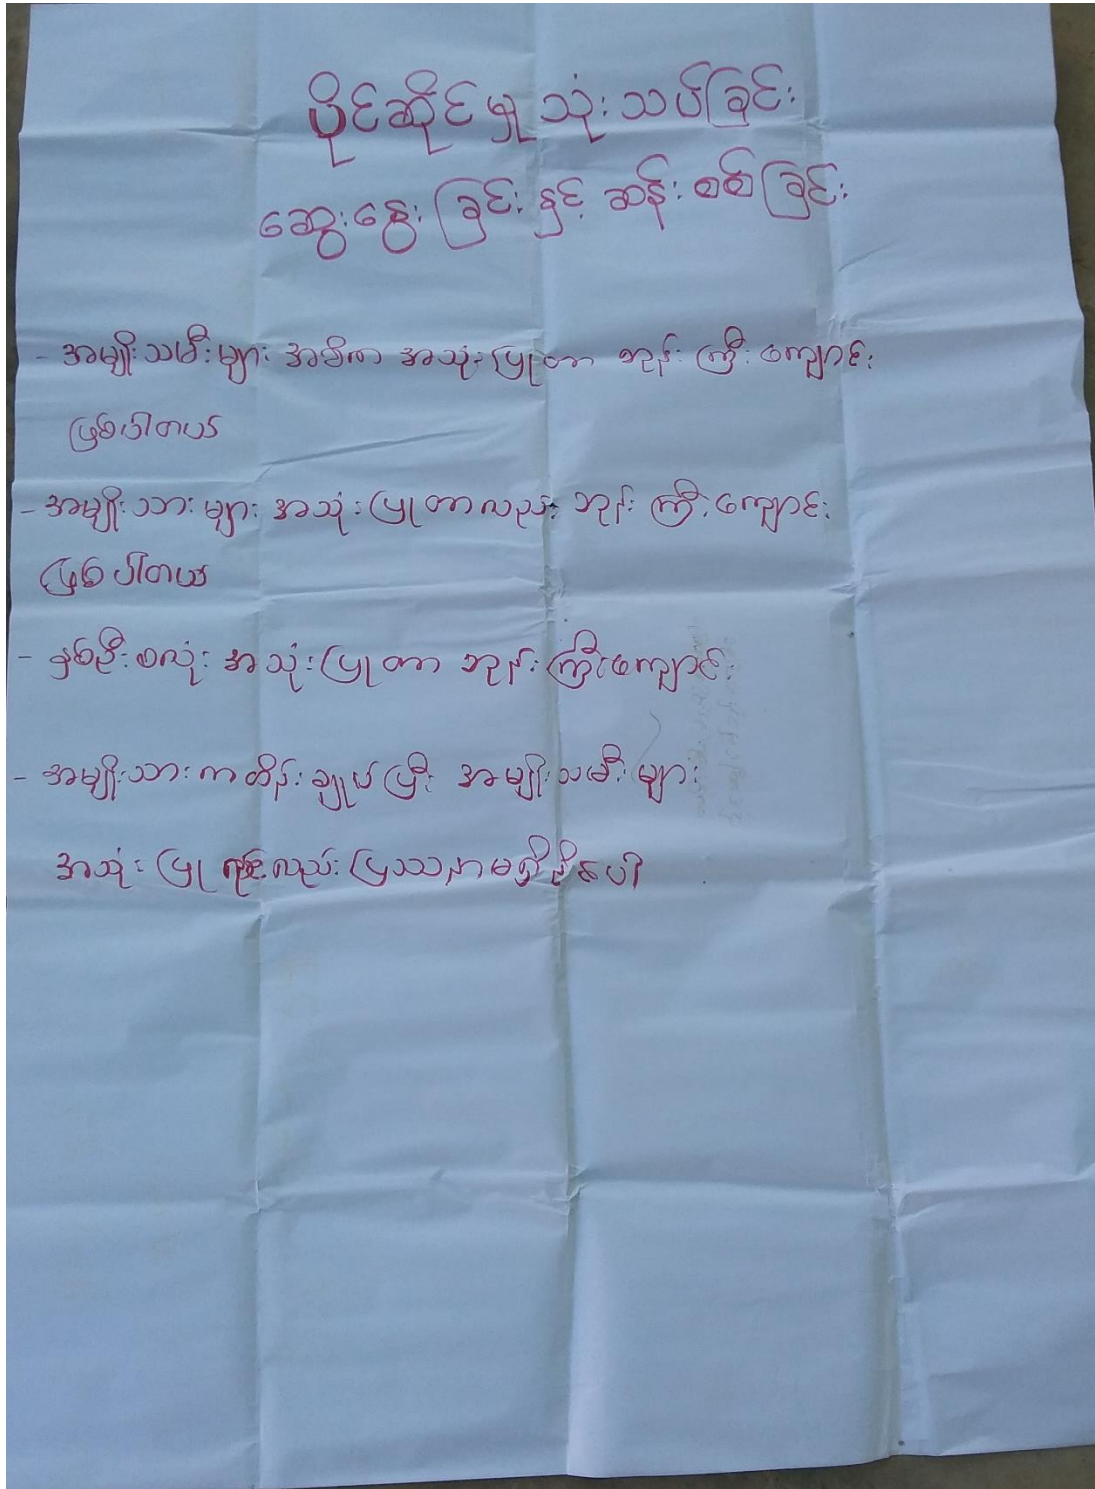 ပိုင်ဆိုင်မှု သုံးသပ်ခြင်း
ဆွေးနွေးခြင်းနှင့် ဆန်းစစ်ခြင်း
- အမျိုးသမီးများ အဓိက အသုံးပြုတာ ဘုန်းကြီးကျောင်း
ဖြစ်ပါတယ်
- အမျိုးသားများ အသုံးပြုတာလည်း ဘုန်းကြီးကျောင်း
ဖြစ်ပါတယ်
- နှစ်ဦးစလုံး အသုံးပြုတာ ဘုန်းကြီးကျောင်း
- အမျိုးသားက ထိန်းချုပ်ပြီး အမျိုးသမီးများ
အသုံးပြုရင်လည်း ပြဿနာမရှိ